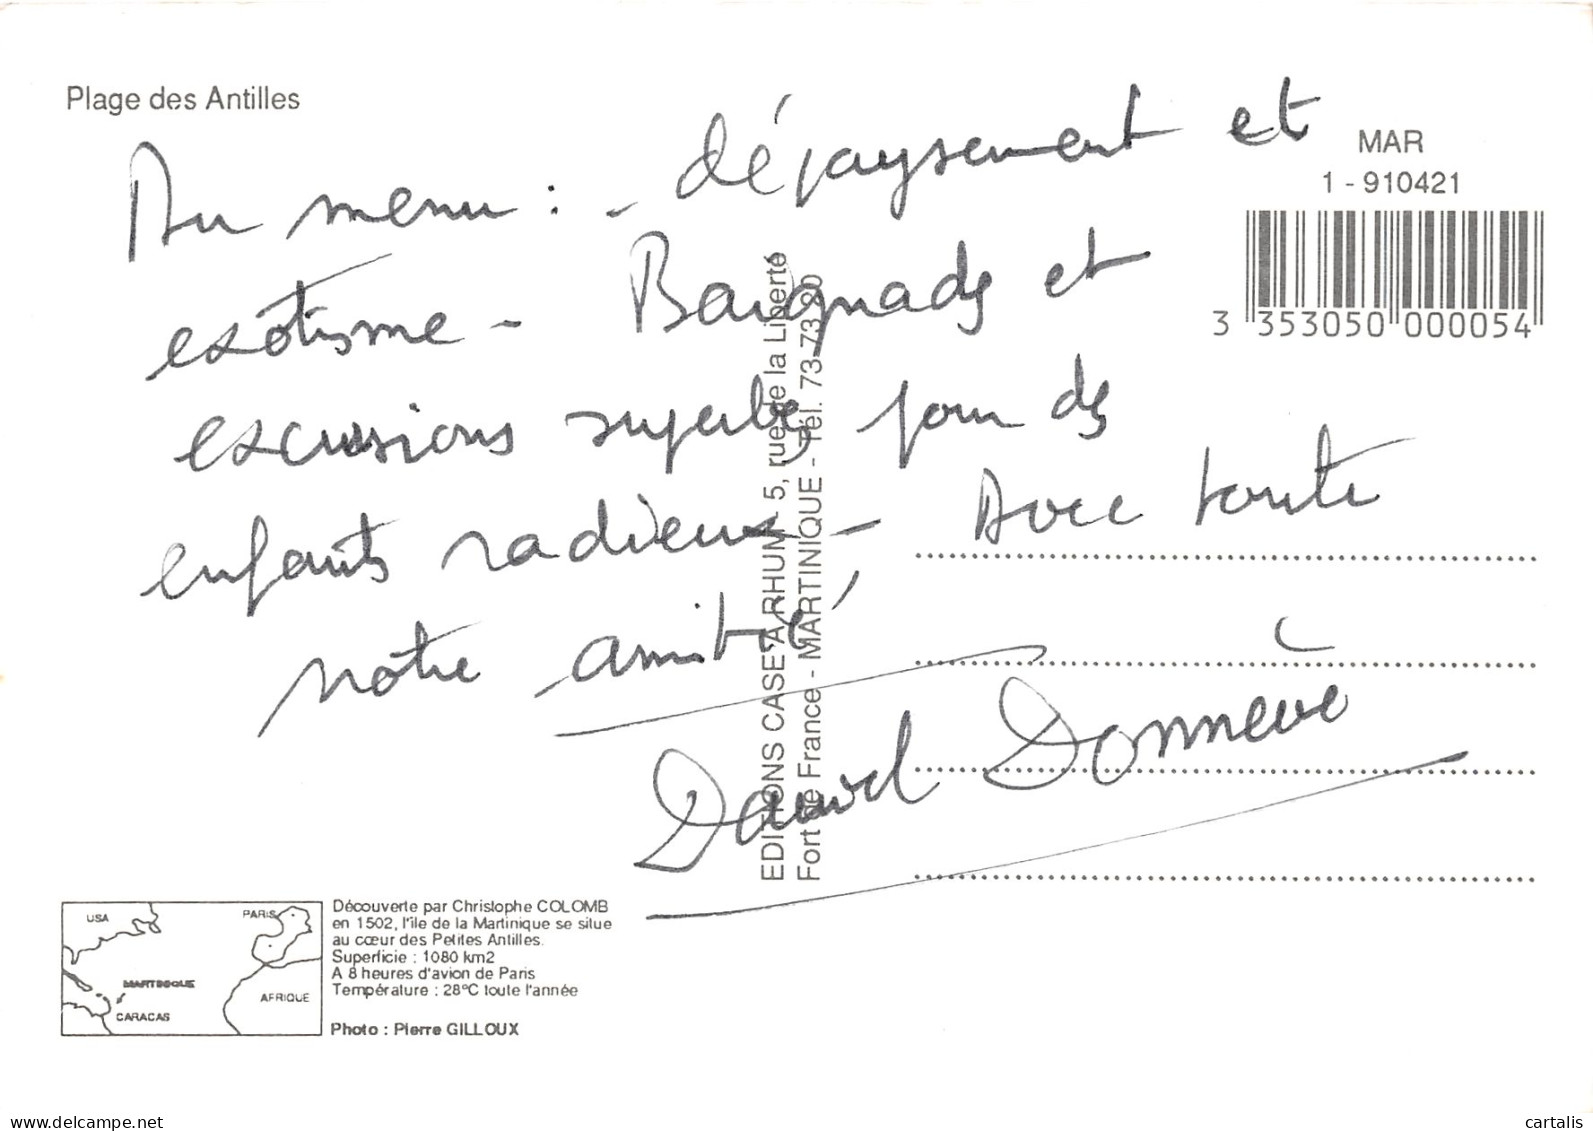 Plage des Antilles
Au menu : - dépaysement et
exôtisme - Baignades et
excursions superbes pour des
enfants radieux - Avec toute
nôtre amitié
MAR
1 - 910421
3 353050 000054
EDITIONS CASE A RHUM - 5, rue de la Liberté
Fort de France - MARTINIQUE - Tél. 73-73-20
USA
PARIS
MARTINIQUE
AFRIQUE
CARACAS
Découverte par Christophe COLOMB
en 1502, l'île de la Martinique se situe
au cœur des Petites Antilles.
Superficie : 1080 km2
A 8 heures d'avion de Paris
Température : 28°C toute l'année
Photo : Pierre GILLOUX
https://www.delcampe.net
cartalis